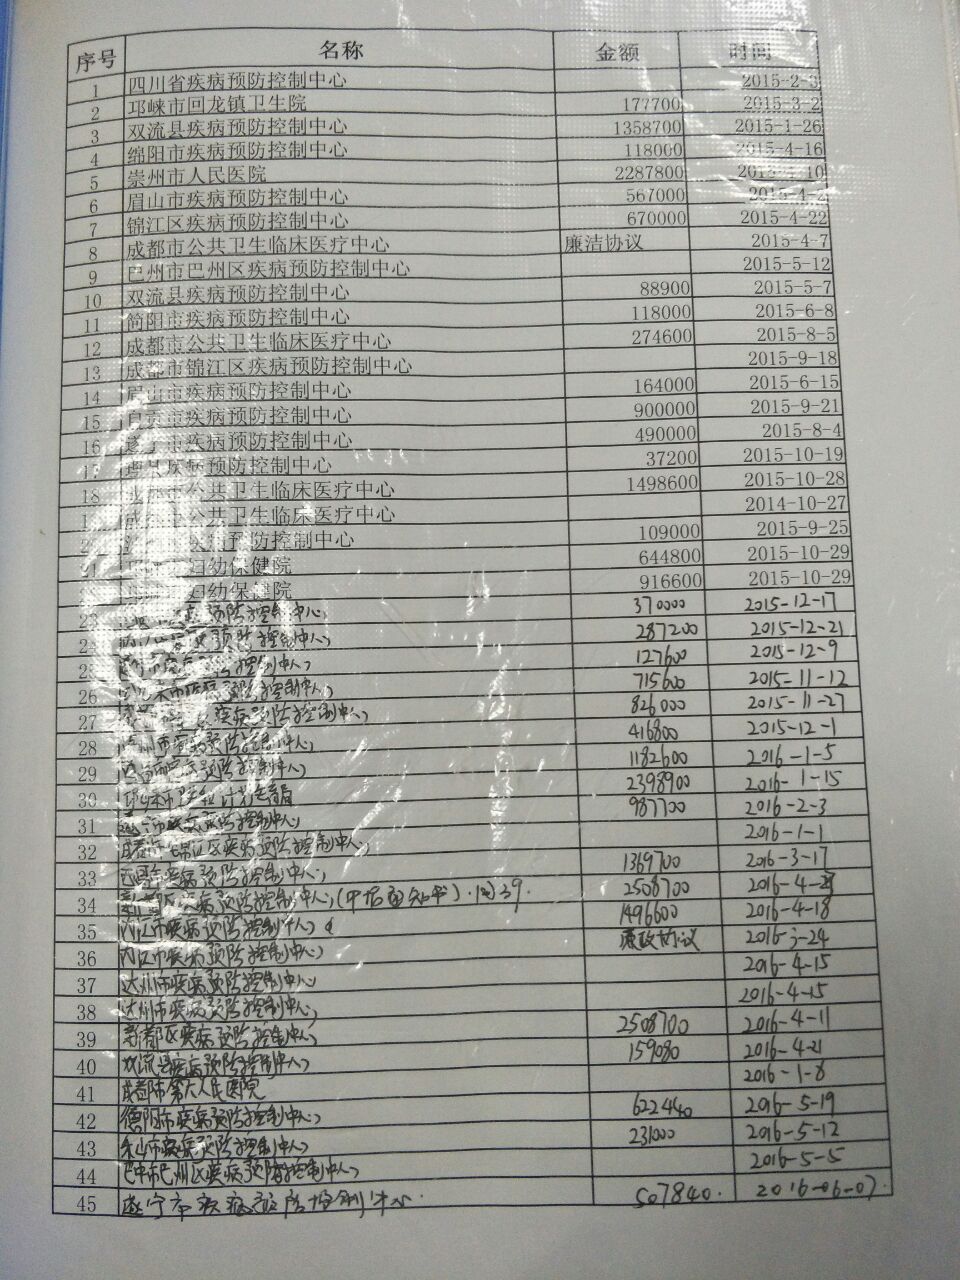 序号 名称 金额 时间
1 四川省疾病预防控制中心 2015-2-3
2 邛崃市回龙镇卫生院 177700 2015-3-2
3 双流县疾病预防控制中心 1358700 2015-1-26
4 绵阳市疾病预防控制中心 118000 2015-4-16
5 崇州市人民医院 2287800 2015-4-10
6 眉山市疾病预防控制中心 567000 2015-4-2
7 锦江区疾病预防控制中心 670000 2015-4-22
8 成都市公共卫生临床医疗中心 廉洁协议 2015-4-7
9 巴州市巴州区疾病预防控制中心 2015-5-12
10 双流县疾病预防控制中心 88900 2015-5-7
11 简阳市疾病预防控制中心 118000 2015-6-8
12 成都市公共卫生临床医疗中心 274600 2015-8-5
13 成都市锦江区疾病预防控制中心 2015-9-18
14 眉山市疾病预防控制中心 164000 2015-6-15
15 自贡市疾病预防控制中心 900000 2015-9-21
16 遂宁市疾病预防控制中心 490000 2015-8-4
17 理县疾病预防控制中心 37200 2015-10-19
18 成都市公共卫生临床医疗中心 1498600 2015-10-28
成都市公共卫生临床医疗中心 2014-10-27
疾病预防控制中心 109000 2015-9-25
21 妇幼保健院 644800 2015-10-29
妇幼保健院 916600 2015-10-29
23 预防控制中心 370000 2015-12-17
24 预防控制中心 287200 2015-12-21
25 控制中心 127600 2015-12-9
26 市疾病预防控制中心 715600 2015-11-12
27 疾病预防控制中心 826000 2015-11-27
28 州市疾病预防控制中心 416800 2015-12-1
29 疾病预防控制中心 1182600 2016-1-5
30 邛崃市卫生和计划生育局 2398900 2016-1-15
31 市疾病预防控制中心 987700 2016-2-3
32 成都市锦江区疾病预防控制中心 2016-1-1
33 疾病预防控制中心 1369700 2016-3-17
34 新都区疾病预防控制中心(中标通知书)·同39. 2508700 2016-4-
35 内江市疾病预防控制中心 1496600 2016-4-18
36 内江市疾病预防控制中心 廉政协议 2016-3-24
37 达州市疾病预防控制中心 2016-4-15
38 达州市疾病预防控制中心 2016-4-15
39 新都区疾病预防控制中心 2508700 2016-4-11
40 双流县疾病预防控制中心 159080 2016-4-21
41 成都市第六人民医院 2016-1-8
42 德阳市疾病预防控制中心 622440 2016-5-19
43 乐山市疾病预防控制中心 231000 2016-5-12
44 巴中市巴州区疾病预防控制中心 2016-5-5
45 遂宁市疾病预防控制中心. 507840. 2016-06-07.